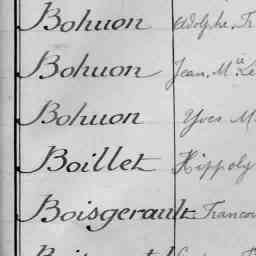 Bohuon Adolphe. Fr
Bohuon Jean. M.ie Le
Bohuon Yves M
Boillet Hippoly
Boisgerault Francoi